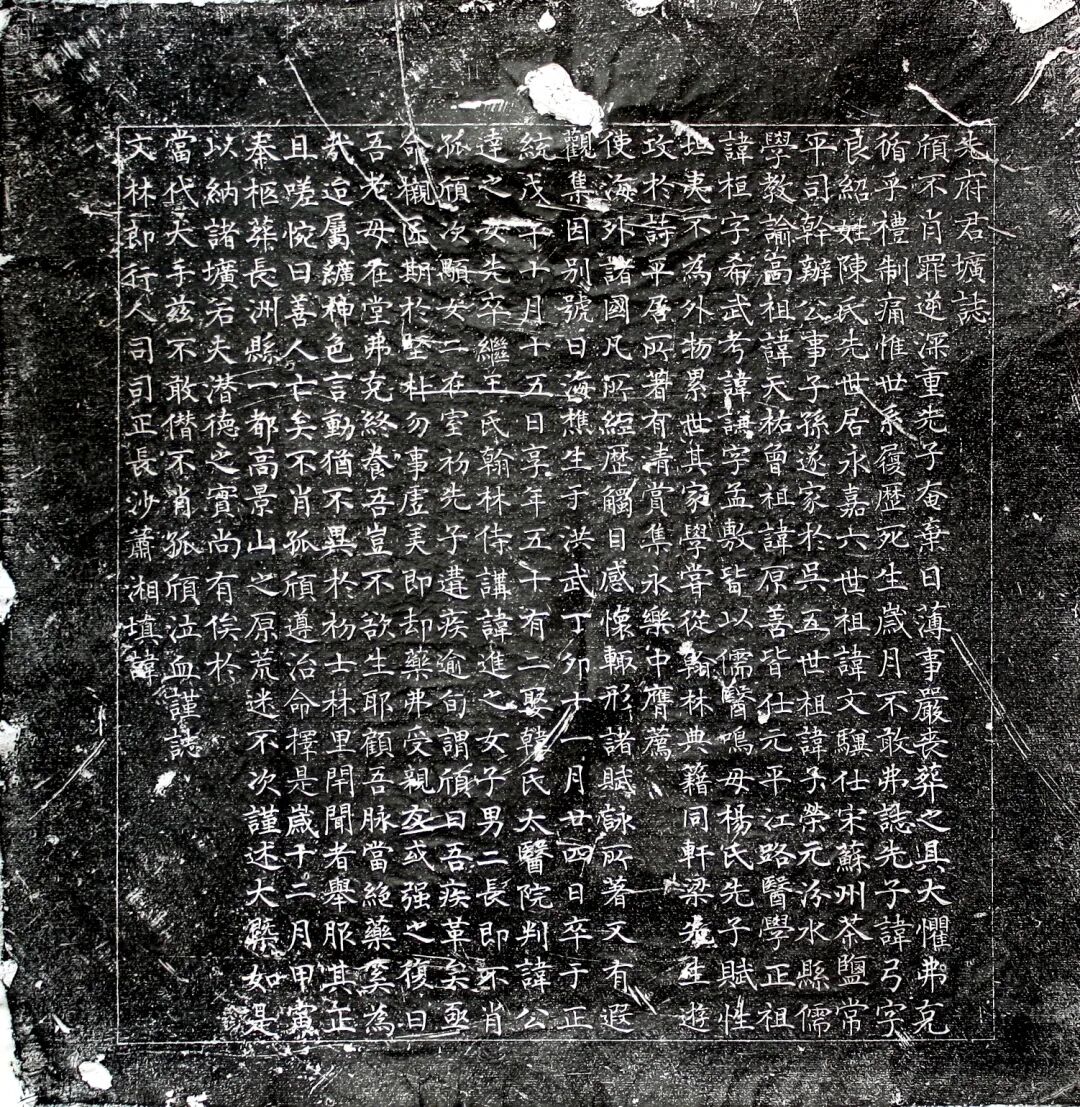 先府君壙誌
頎不肖罪逆深重先子奄棄日薄事嚴喪葬之具大懼弗克
循乎禮制痛惟世系履歷死生歲月不敢弗誌先子諱弓字
良紹姓陳氏先世居永嘉六世祖諱文驥仕宋蘇州茶鹽常
平司幹辦公事子孫遂家於吳五世祖諱子榮元汾水縣儒
學教諭高祖諱天祐曾祖諱原善皆仕元平江路醫學正祖
諱桓字希武考諱謙字孟敷皆以儒醫鳴母楊氏先子賦性
坦夷不為外物累世其家學嘗從翰林典籍同軒梁先生遊
攻於詩平居所著有清賞集永樂中膺薦
使海外諸國凡所經歷觸目感懷輒形諸賦詠所著又有遐
觀集因別號曰海樵生于洪武丁卯十一月廿四日卒于正
統戊午十月十五日享年五十有二娶韓氏太醫院判諱公
達之女先卒繼王氏翰林侍講諱進之女子男二長即不肖
孤頎次顒女二在室初先子遘疾逾旬謂頎曰吾疾革矣亟
命櫬匠期於堅朴勿事虛美即却藥弗受親友或强之復曰
吾老母在堂弗克終養吾豈不欲生耶顧吾脉當絕藥奚為
我迨屬纊神色言動猶不異於初士林里閈聞者舉服其正
且嗟惋曰善人亡矣不肖孤頎遵治命擇是歲十二月甲寅
奉柩葬長洲縣一都高景山之原荒迷不次謹述大槩如是
以納諸壙若夫潛德之實尚有俟於
當代大手茲不敢僭不肖孤頎泣血謹誌
文林郎行人司司正長沙蕭湘填諱